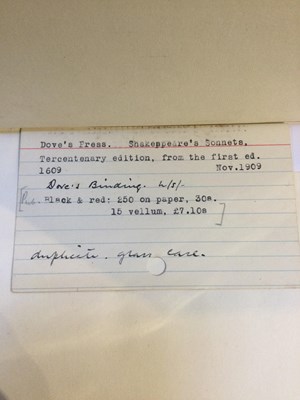 Dove's Press. Shakeppeare's Sonnets.
Tercentenary edition, from the first ed.
1609 Nov.1909
Dove's Binding. W/S/-
[Pub. Black & red: 250 on paper, 30s.
15 vellum, £7.10s]
duplicate. glass case.